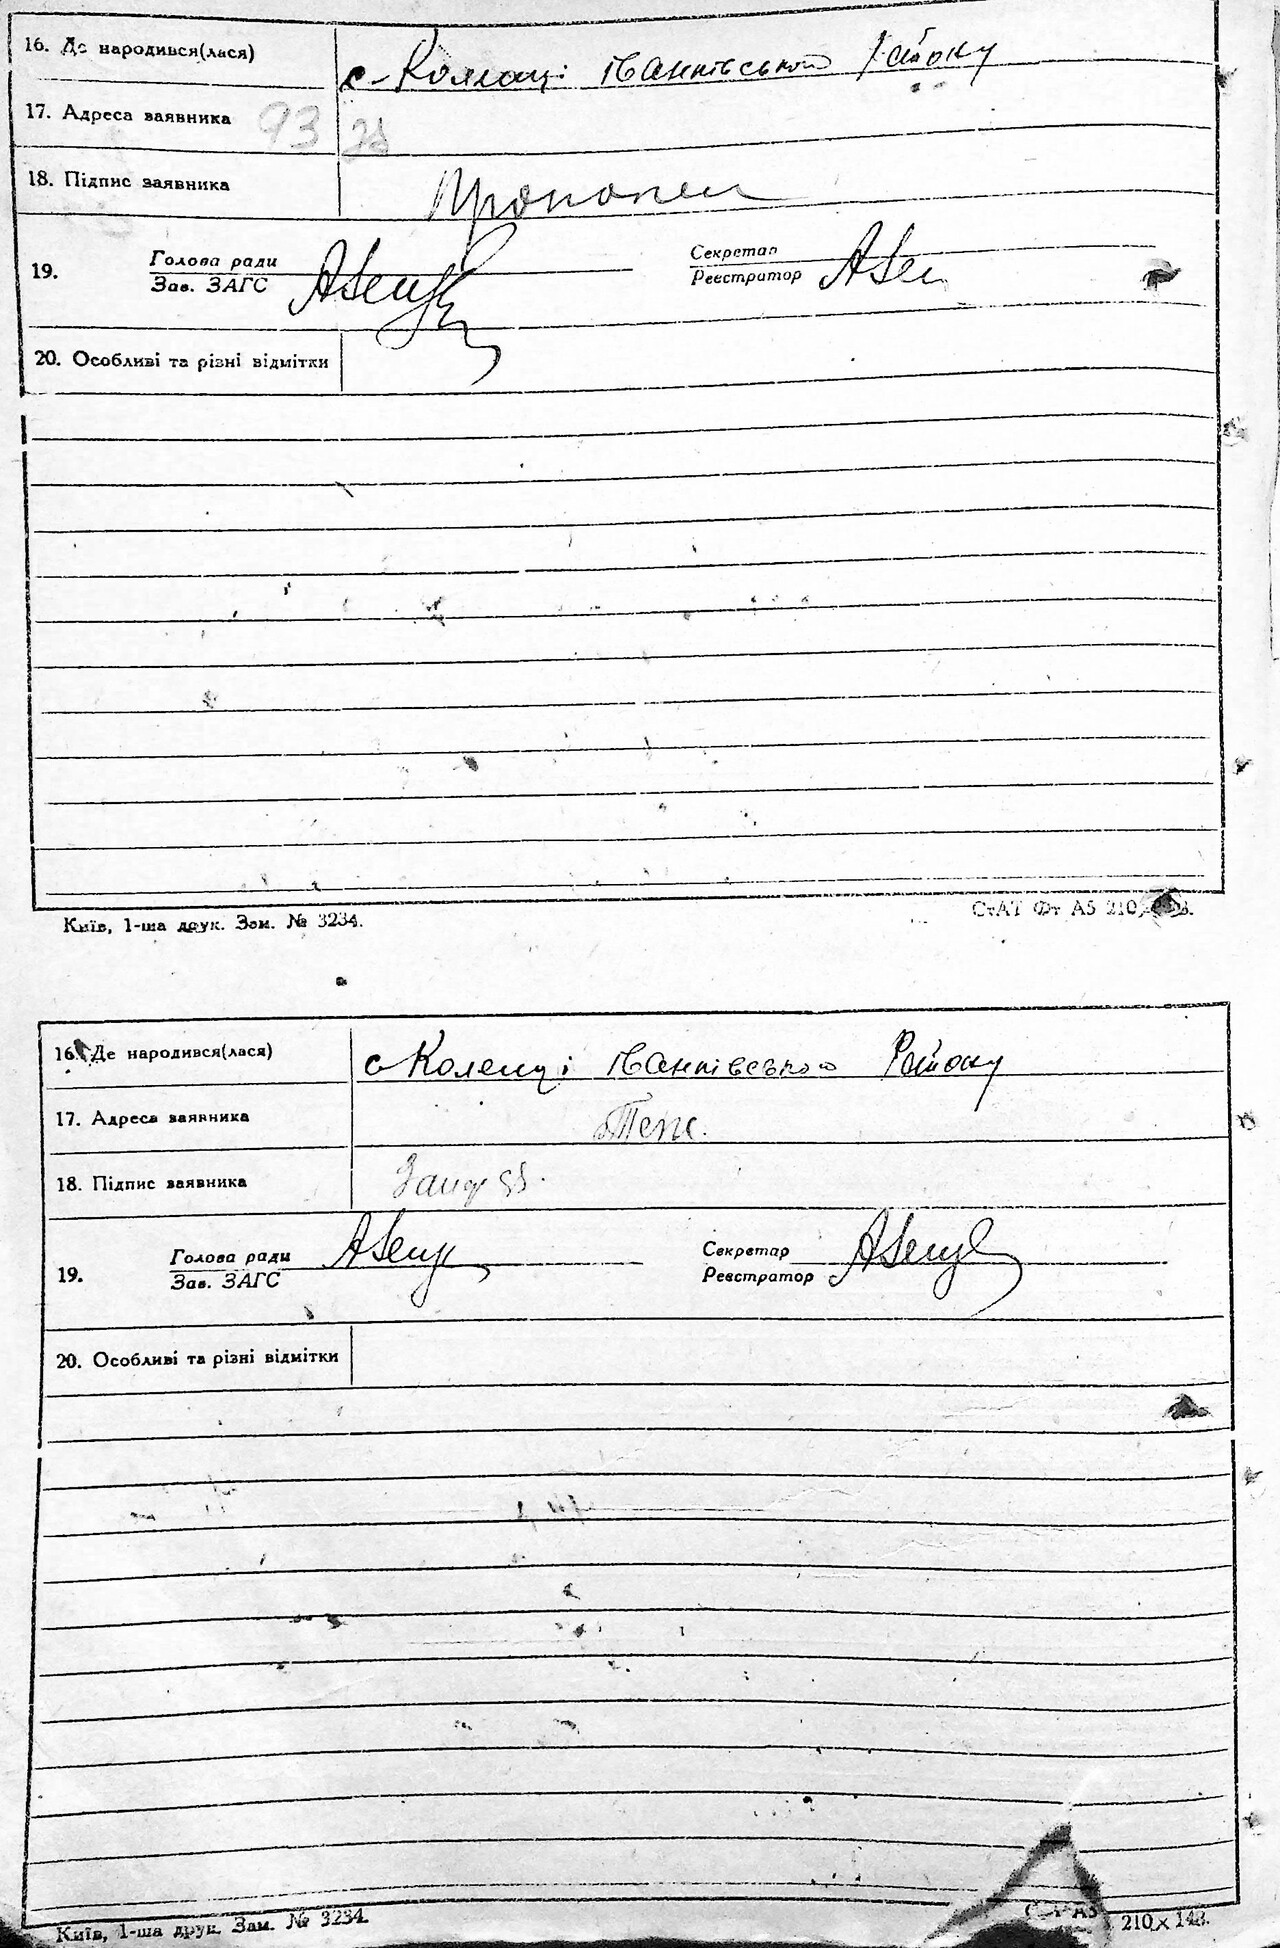 16. Де народився(лася) с. Коленці Іванківського Району
17. Адреса заявника 93
18. Підпис заявника
19. Голова ради Секретар
Зав. ЗАГС Реєстратор
20. Особливі та різні відмітки
Київ, 1-ша друк. Зам. № 3234. СтАТ Фт А5 210
16. Де народився(лася) с Коленці Іванківського Району
17. Адреса заявника
18. Підпис заявника
19. Голова ради Секретар
Зав. ЗАГС Реєстратор
20. Особливі та різні відмітки
Київ, 1-ша друк. Зам. № 3234. А5 210×148.